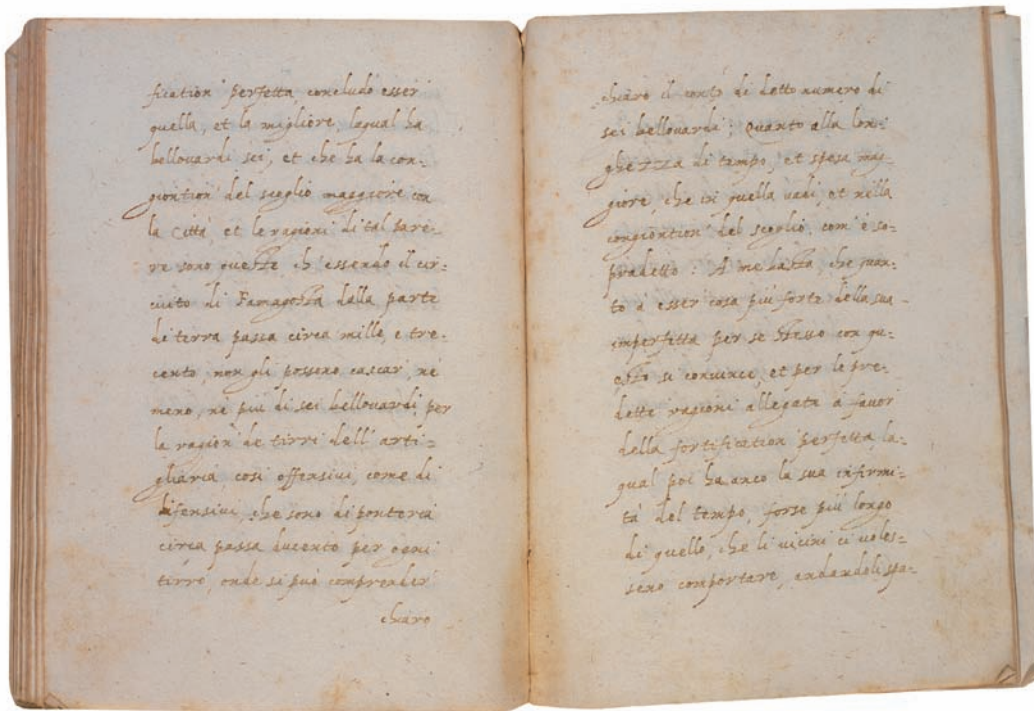 fication' perfetta, concludo esser
quella, et la migliore, laqual ha
bellouardi sei, et che ha la con-
giontion' del scoglio maggiore con
la Città, et le ragioni di tal pare-
re sono queste, ch'essendo il cir-
cuito di Famagosta dalla parte
di terra passa circa mille, e tre-
cento, non gli posseno cascar, nè
meno, nè più di sei bellouardi per
la ragion' de tirri dell'arti=
gliaria, cosi offensiui, come di
difensiui, che sono di ponteria
circa passa ducento per ogni
tirro, onde si può comprender'
chiaro
chiaro il conto di detto numero di
sei bellouardi; Quanto alla lon-
ghezza di tempo, et spesa mag-
giore, che in quella uadi, et nella
congiontion' del scoglio, com'è so-
pradetto: A me basta, che quan-
to à esser cosa più forte della sua
imperfetta per se stesso con qu-
esto si conuince, et per le pre-
dette ragioni allegata à fauor
della fortification' perfetta, la-
qual poi ha anco la sua infirmi-
tà del tempo, forse più longo
di quello, che li uicini ci uoles-
seno comportare, andandoli spa-